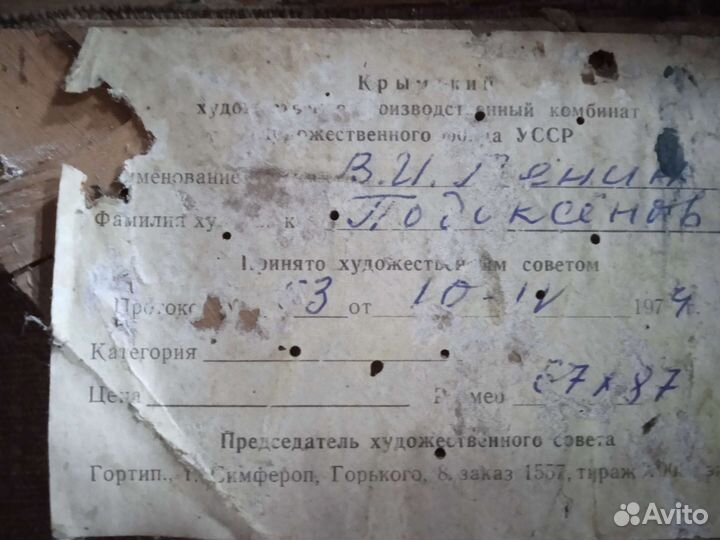 Крымский
художественно-производственный комбинат
художественного фонда УССР
Наименование В.И. Ленин
Фамилия художника Подоксёнов
Принято художественным советом
Протокол № 53 от 10-IV 1974 г.
Категория
Цена Размер 67х87
Председатель художественного совета
Гортип., г. Симфероп, Горького, 8, заказ 1557, тираж
Avito